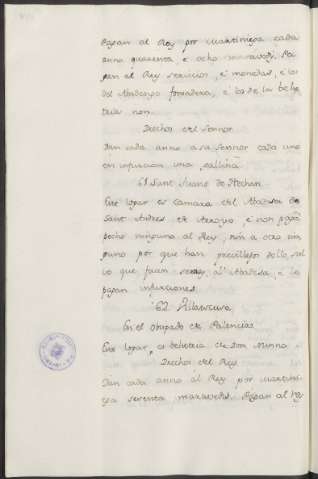 Pagan al Rey por cuartiniega cadal
anno quarenta e ocho maravedis. Pa-
gan al Rey servicios, e monedas, e los
del Abadengo fonsadera, e los de la behe-
tria non.
Drechos del Sennor
Dan cada anno a su sennor cada uno
en infurcion una gallina.
61 Sant Juane de
Este logar es Camara del Abadesa de
Sant Andres de Arroyo, e non pagan
pecho ninguno al Rey, nin a otro nin-
guno por que han previllejo dello, sal
lo que facen al Abadesa, e lo
pagan infurciones.
62
En el obispado de Palencia.
Este logar es behetria de Don Nunno.
Drechos del Rey
Dan cada anno al Rey por martini-
ega seventa maravedis. Pagan al Rey